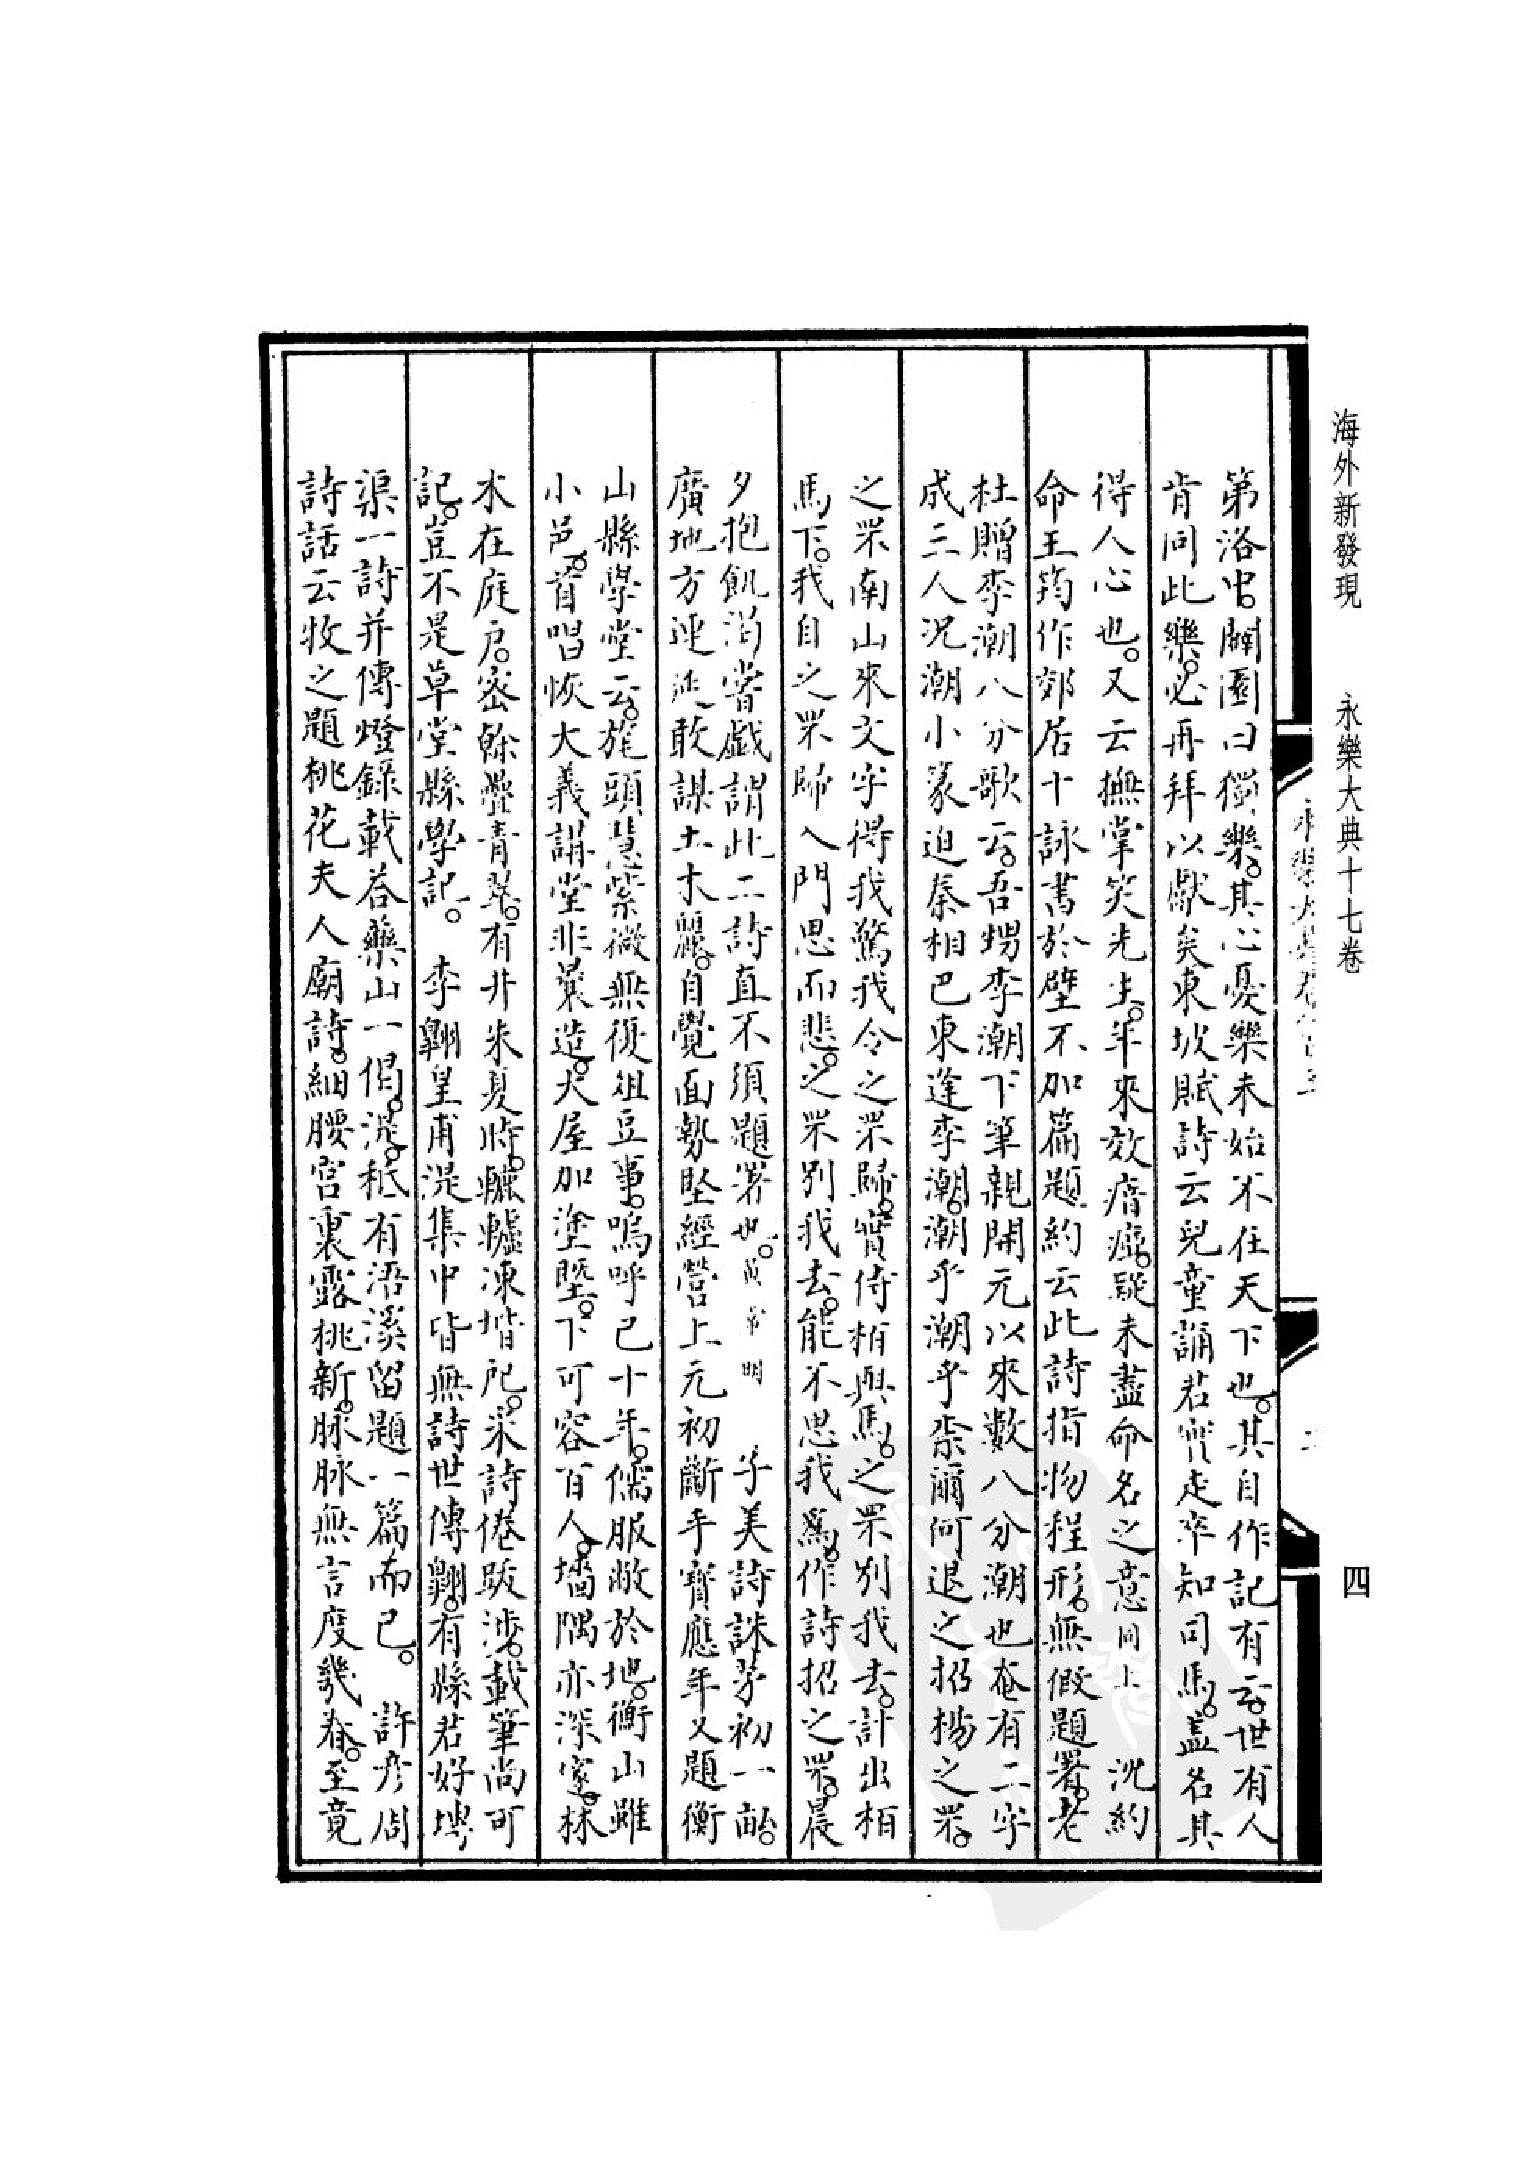 海外新發現　永樂大典十七卷
四
第洛中。闢園曰獨樂。其心憂樂未始不在天下也。其自作記有云。世有人
肯同此樂。必再拜以獻矣東坡賦詩云兒童誦君實走卒知司馬。蓋名其
得人心也。又云撫掌笑先生。年來效瘖瘂。疑未盡命名之意同上　沈約
命王筠作郊居十詠書於壁不加篇題約云此詩指物程形。無假題署。老
杜贈李潮八分歌云。吾甥李潮下筆親開元以來數八分潮也奄有二字
成三人況潮小篆迫秦相巴東逢李潮。潮乎潮乎柰爾何退之招楊之罘。
之罘南山來文字得我驚我令之罘歸。實侍栢與馬。之罘別我去。計出栢
馬下。我自之罘歸入門思而悲。之罘別我去。能不思我為。作詩招之罘。晨
夕抱飢渴嘗戲謂此二詩直不須題署也。黃常明　子美詩誅茅初一畝。
廣地方連延敢謀土木麗。自覺面勢堅經營上元初斷手寶應年又題衡
山縣學堂云。旄頭彗紫微無復俎豆事。嗚呼已十年。儒服敝於地。衡山雖
小邑。首唱恢大義講堂非曩造。大屋加塗塈。下可容百人。墻隅亦深邃。林
木在庭戶。密榦疊青翠。有井朱夏時。轆轤凍堦戺。采詩倦跋涉。載筆尚可
記。豈不是草堂縣學記。　李翺皇甫湜集中皆無詩世傳翺。有縣君好塼
渠一詩并傳燈錄載荅藥山一偈。湜。秪有浯溪留題一篇而已。　許彥周
詩話云牧之題桃花夫人廟詩。細腰宮裏露桃新。脉脉無言度幾春。至竟